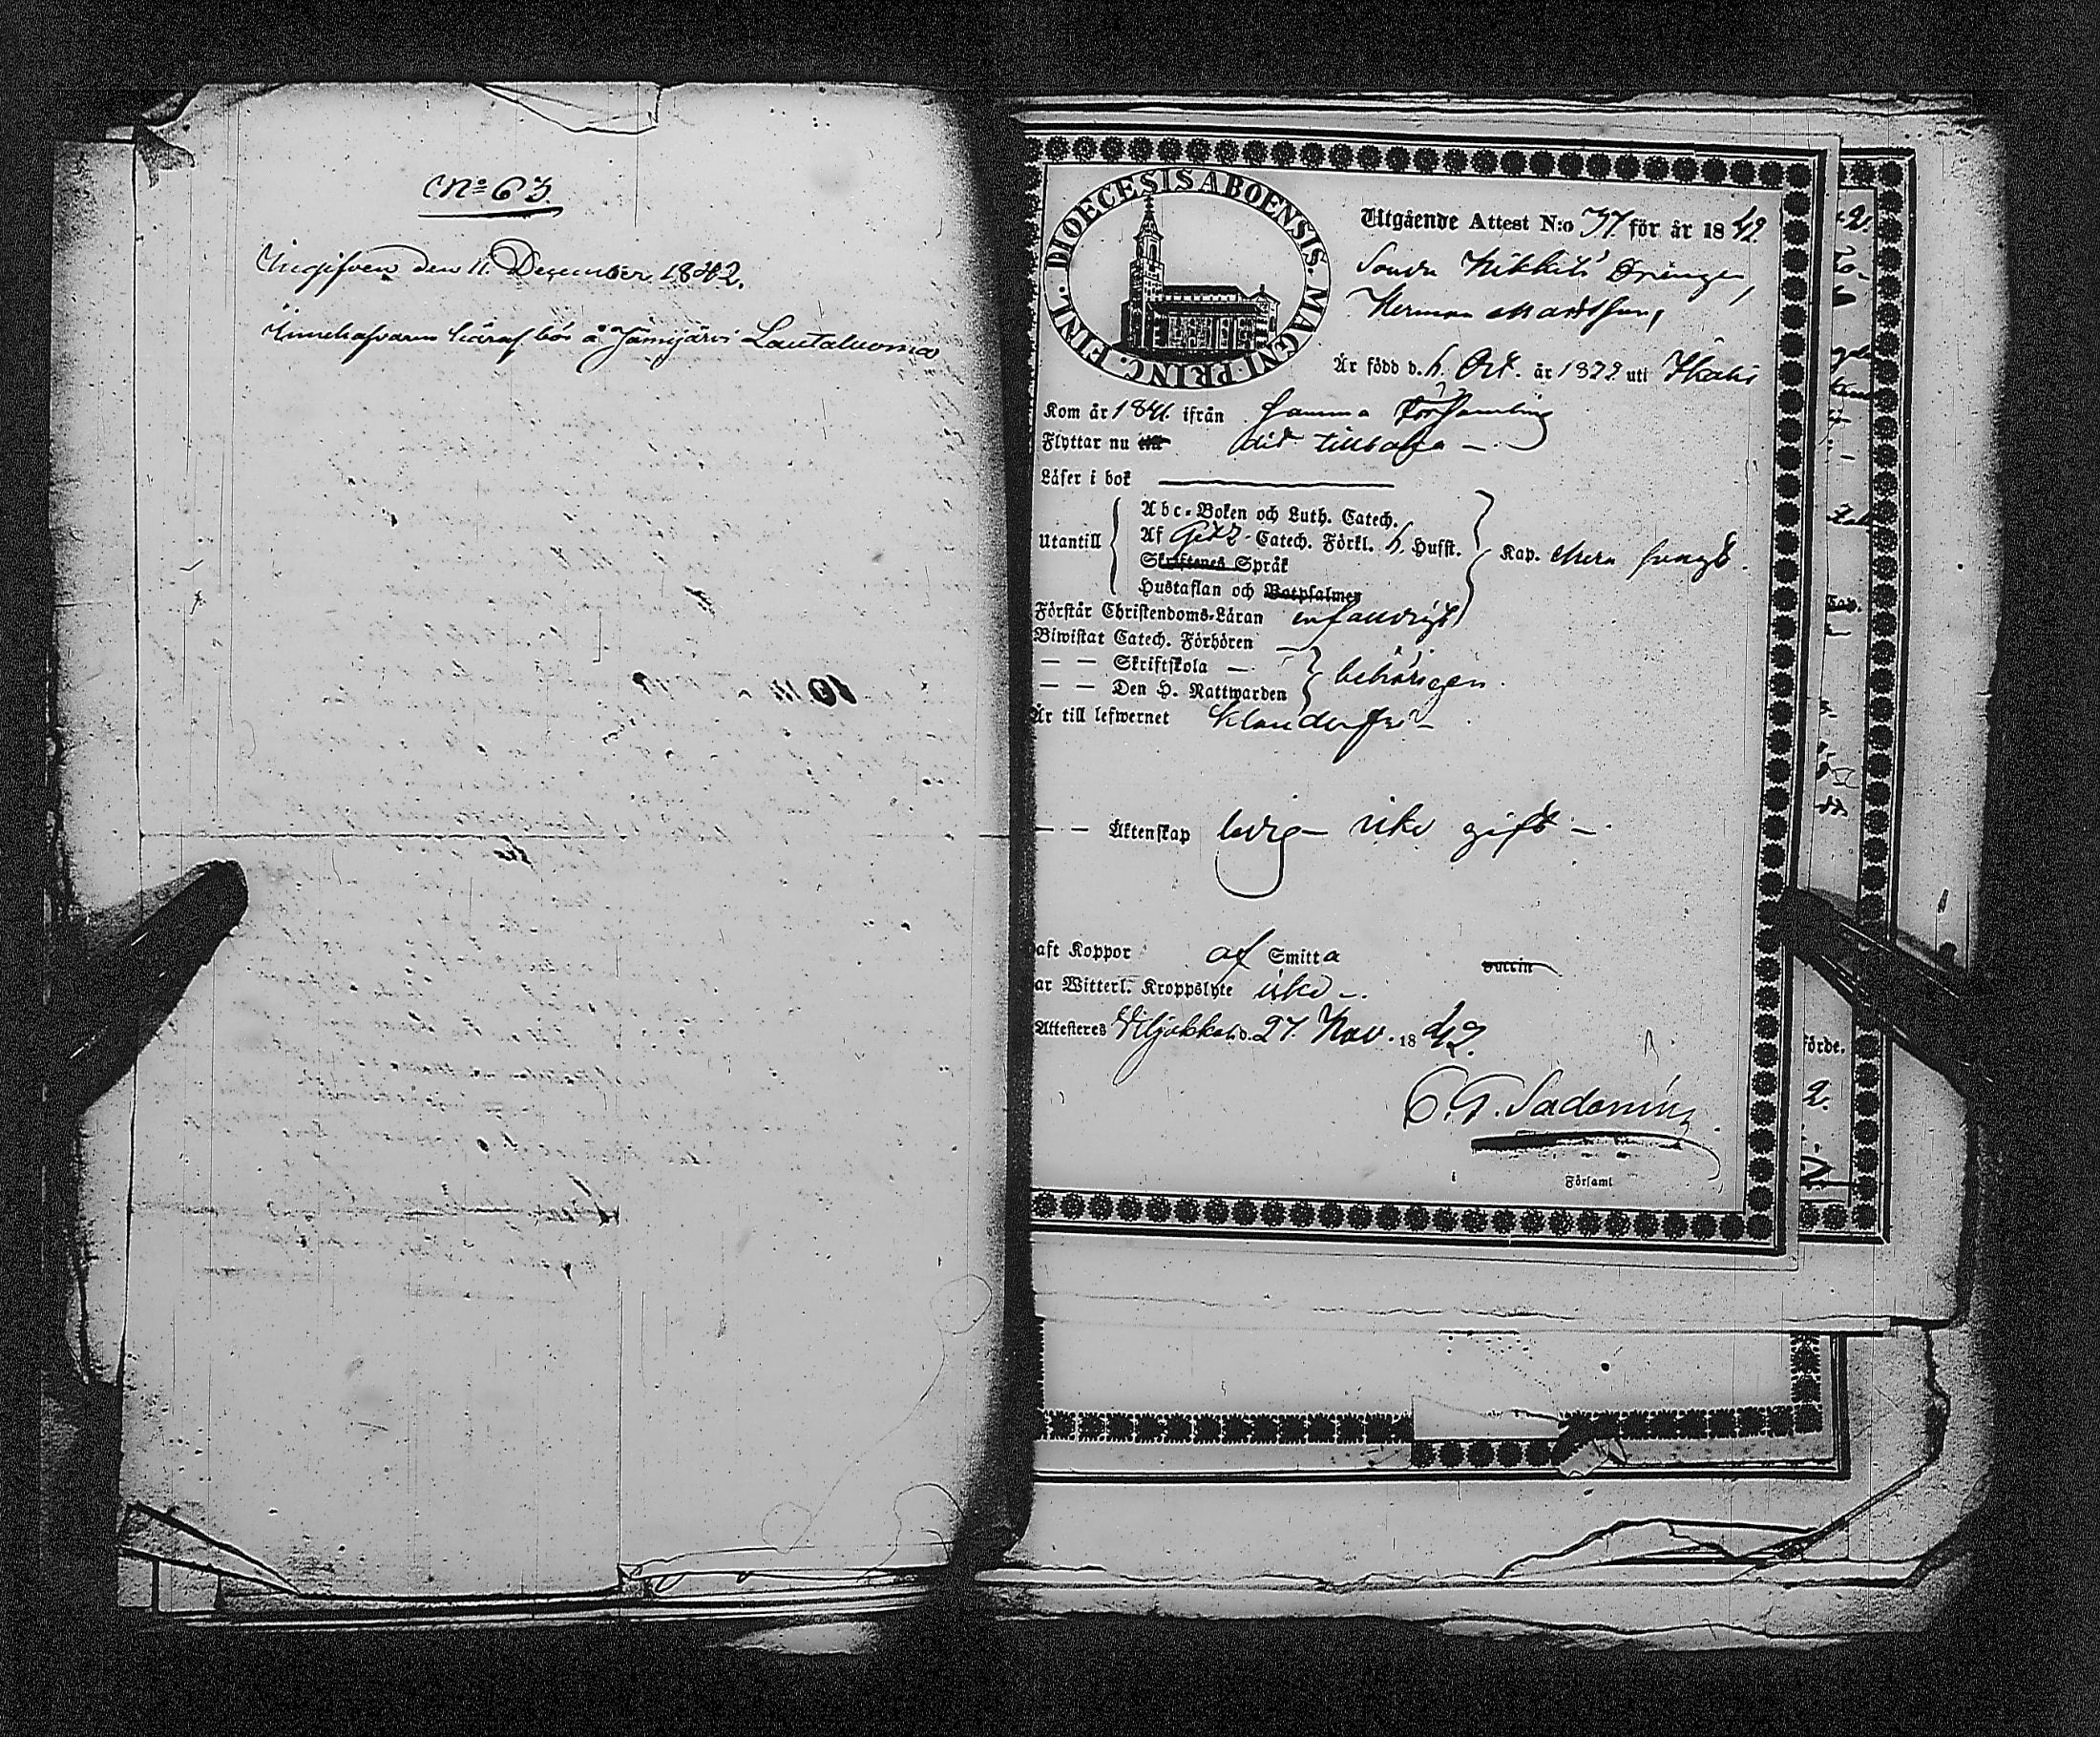 No 63.
Ingifven den 11. December 1842.
Innehafvaren häraf bor å Jämijärvi Lautaluoma
DIOECESIS ABOENSIS. MAGNI PRINC. FINL.
Utgående Attest N:o 37 för år 1842.
Kikkilä Drängen,
Herman Mattsson,
Är född d. 6. Oct. år 1822 uti Ikalis
Kom år 1841 ifrån samma Församling
Flyttar nu till dit tillbaka —
Läser i bok
Abc-Boken och Luth. Catech.
Utantill Af Catech. Förkl. 6. Hufst. Kap. svagt.
Skriftenes Språk
Hustaflan och Botpsalmer
Förstår Christendoms-Läran enfaldigt
Biwistat Catech. Förhören —
— — Skriftskola — behörigen.
— — Den H. Nattwarden
Är till lefwernet klanderfri —
— — Äktenskap ledig — icke gift —
aft Koppor af Smitta Vaccin
ar Witterl. Kroppslyte icke —.
Attesteres Wiljakkala d. 27. Nov. 1842.
i Församl